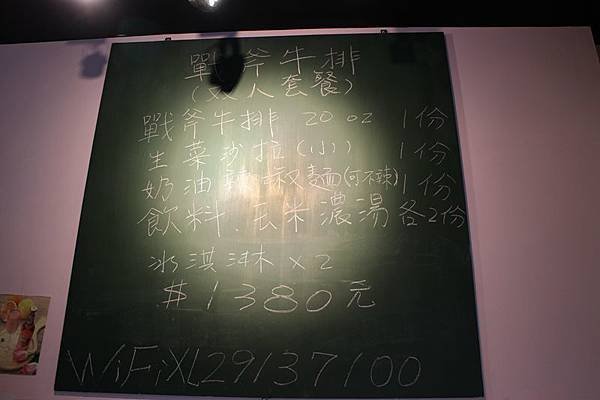 戰斧牛排
(双人套餐)
戰斧牛排 20 oz 1份
生菜沙拉(小) 1份
奶油辣椒麵(可不辣)1份
飲料、玉米濃湯各2份
冰淇淋 x 2
$1380元
WiFi:XL29137100